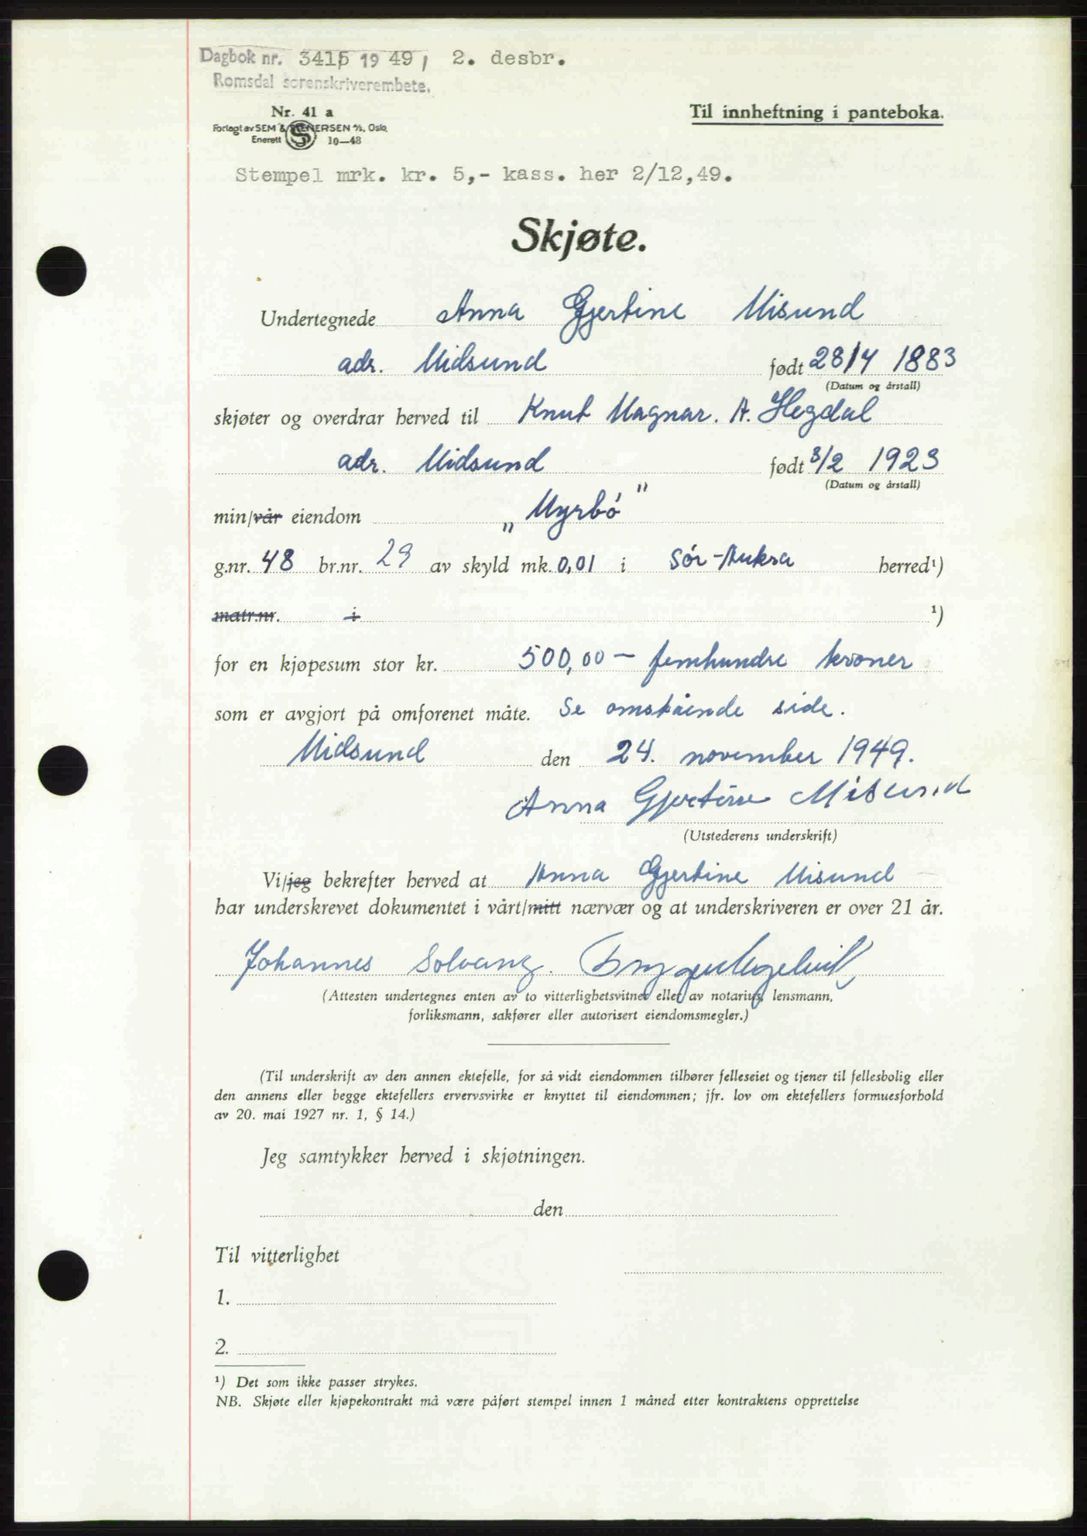 Dagbok nr. 3415 19 49, 2. desbr.
Romsdal sorenskriverembete.
Nr. 41 a
Til innheftning i panteboka.
Forlagt av SEM & STENERSEN A/S, Oslo.
Enerett 10—48
Stempel mrk. kr. 5,- kass. her 2/12,49.
Skjøte.
Undertegnede Anna Gjertine Misund
adr. Midsund født 28/4 1883
(Datum og årstall)
skjøter og overdrar herved til Knut Magnar. A. Hegdal
adr. Midsund født 3/2 1923
(Datum og årstall)
min/vår eiendom „Myrbö"
g.nr. 48 br.nr. 29 av skyld mk. 0,01 i Sör-Aukra herred¹)
matr.nr. i ¹)
for en kjøpesum stor kr. 500,00 — femhundre kroner
som er avgjort på omforenet måte. Se omstående side.
Midsund den 24. november 1949.
Anna Gjertine Misund
(Utstederens underskrift)
Vi/jeg bekrefter herved at Anna Gjertine Misund
har underskrevet dokumentet i vårt/mitt nærvær og at underskriveren er over 21 år.
Johannes Solvang.
(Attesten undertegnes enten av to vitterlighetsvitner eller av notarius, lensmann,
forliksmann, sakfører eller autorisert eiendomsmegler.)
(Til underskrift av den annen ektefelle, for så vidt eiendommen tilhører felleseiet og tjener til fellesbolig eller
den annens eller begge ektefellers ervervsvirke er knyttet til eiendommen; jfr. lov om ektefellers formuesforhold
av 20. mai 1927 nr. 1, § 14.)
Jeg samtykker herved i skjøtningen.
den
Til vitterlighet
1.
2.
¹) Det som ikke passer strykes.
NB. Skjøte eller kjøpekontrakt må være påført stempel innen 1 måned etter kontraktens opprettelse